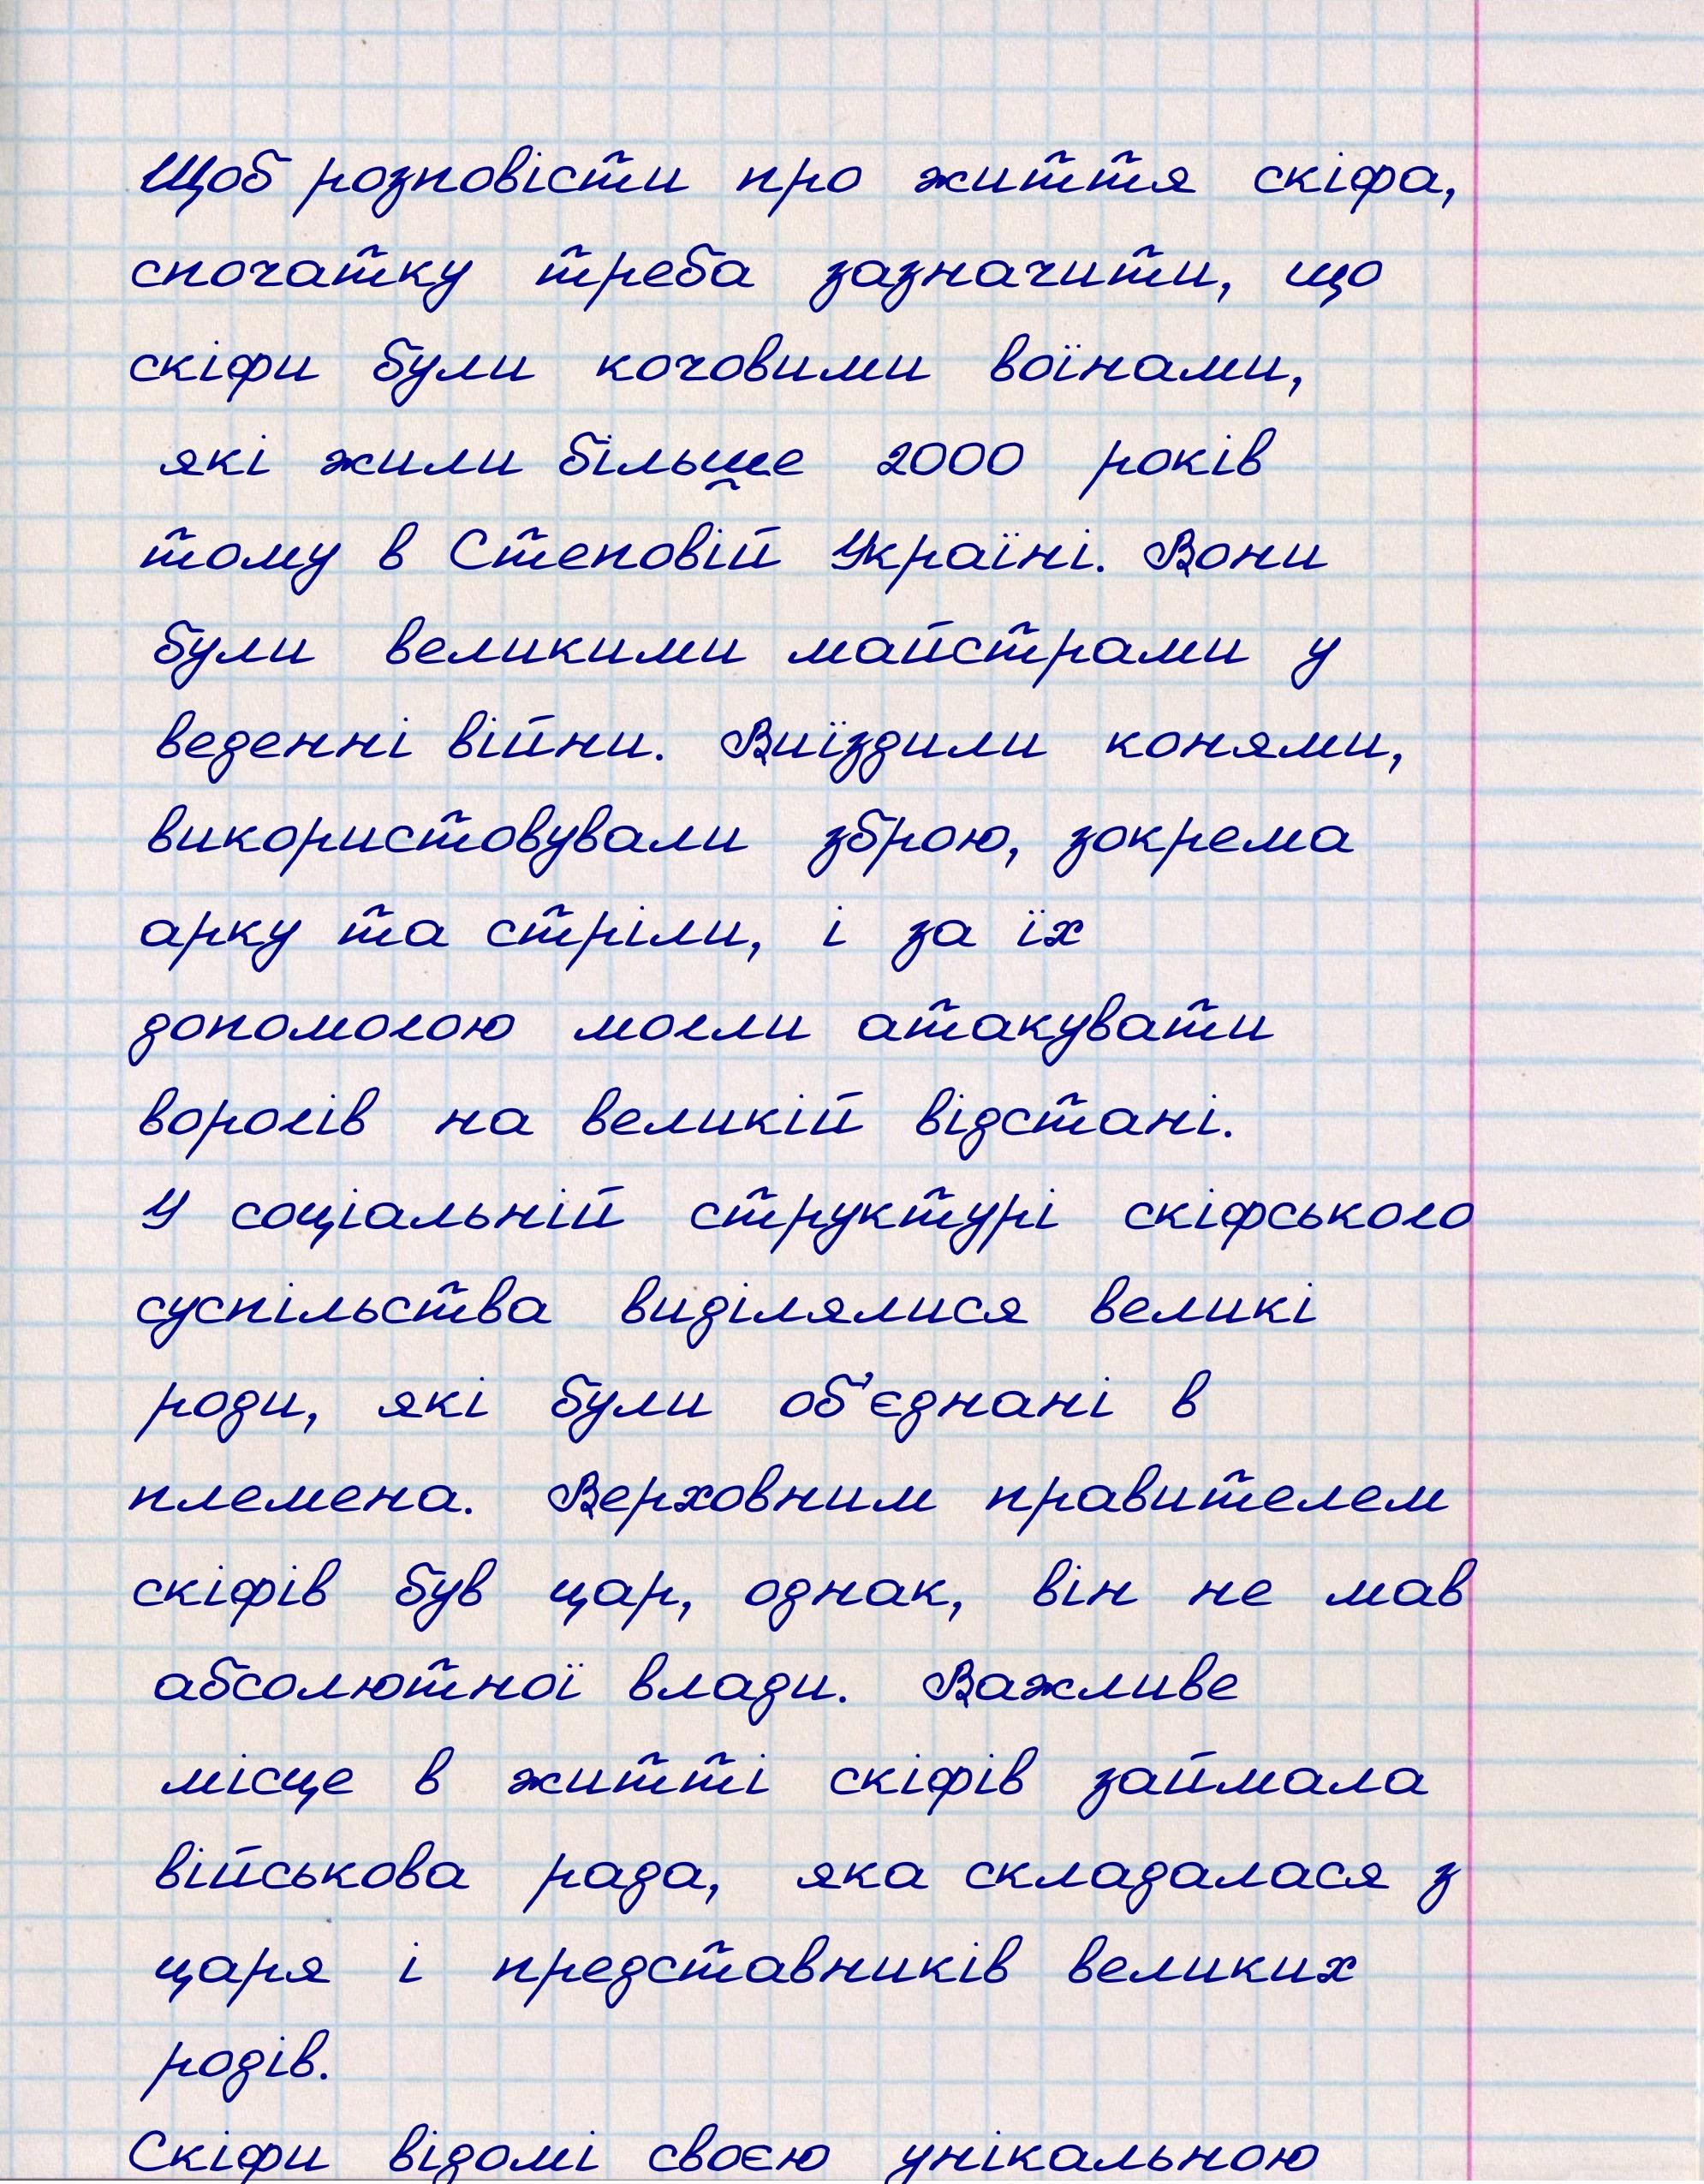 Щоб розповісти про життя скіфа,
спочатку треба зазначити, що
скіфи були кочовими воїнами,
які жили більше 2000 років
тому в Степовій Україні. Вони
були великими майстрами у
веденні війни. Виїздили конями,
використовували зброю, зокрема
арку та стріли, і за їх
допомогою могли атакувати
ворогів на великій відстані.
У соціальній структурі скіфського
суспільства виділялися великі
роди, які були об'єднані в
племена. Верховним правителем
скіфів був цар, однак, він не мав
абсолютної влади. Важливе
місце в житті скіфів займала
військова рада, яка складалася з
царя і представників великих
родів.
Скіфи відомі своєю унікальною